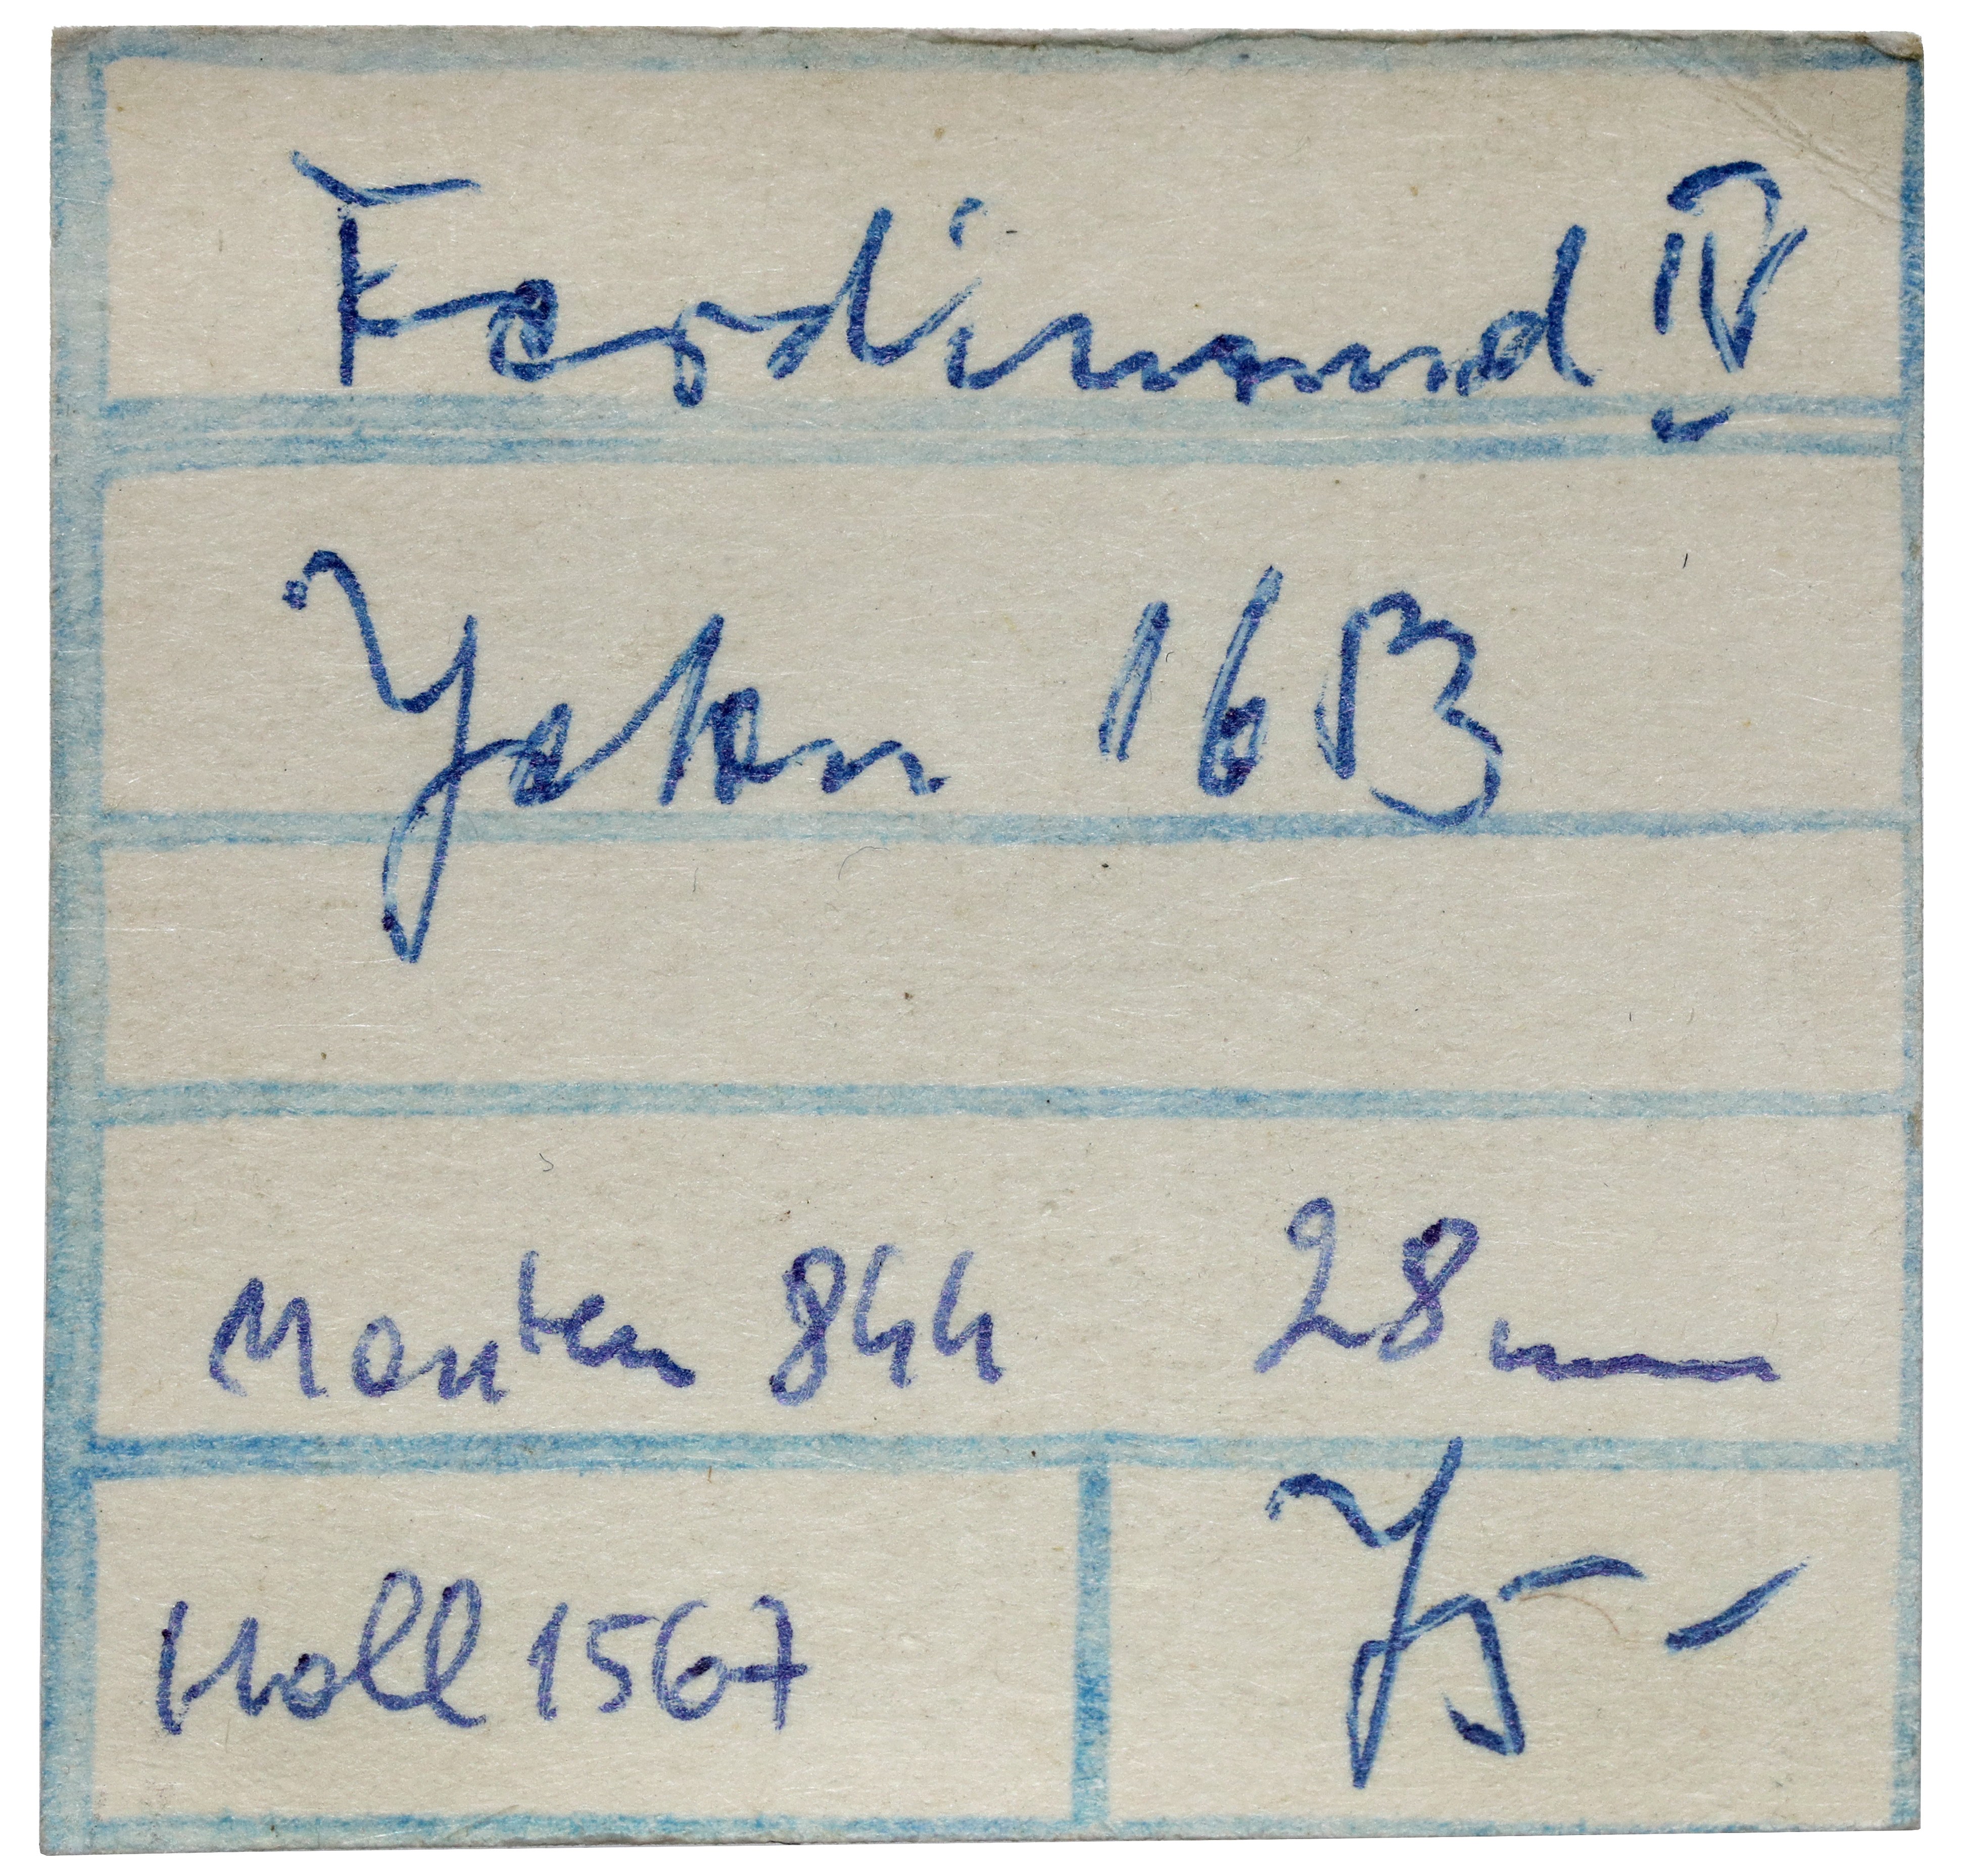 Ferdinand IV
Jeton 1653
Monten 844 28 mm
Holl 1567